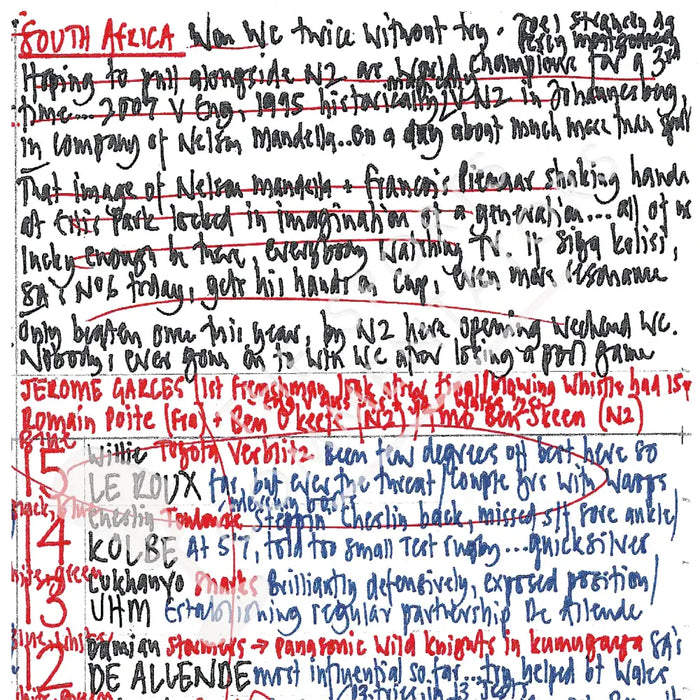 SOUTH AFRICA Won WC twice without try. Joel Stransky 95
Percy Montgomery
Hoping to pull alongside NZ as World Champions for a 3rd
time.... 2007 V Eng, 1995 historically V NZ in Johannesburg
in company of Nelson Mandella..on a day about much more than sport
That image of Nelson Mandella + Francois Pienaar shaking hands
at Ellis Park locked in imagination of a generation....all of us
lucky enough be there, everybody watching TV. If Siya Kolisi,
SA's No6 today, gets his hands on cup, even more resonance
Only beaten once this year, by NZ here opening weekend WC.
Nobody's ever gone on to win WC after losing a pool game
JEROME GARCES 1st Frenchman final blowing whistle had 1st
Romain Poite (Fra) + Ben O'Keefe (NZ), TMO Ben Skeen (NZ)
15 Willie Toyota Verblitz Been few degrees off best here so
LE ROUX far, but ever the threat/couple yrs with Wasps
14 Cheslin Toulouse Steppin Cheslin back, missed s/f, sore ankle/
KOLBE At 5'7, told too small Test rugby...quicksilver
13 Lukhanyo Sharks Brilliantly defensively, exposed position/
UHM Establishing regular partnership De Allende
12 Damian Stormers → Panasonic Wild Knights in Kumugaya SA's
DE ALLENDE most influential so far...try helped bt Wales